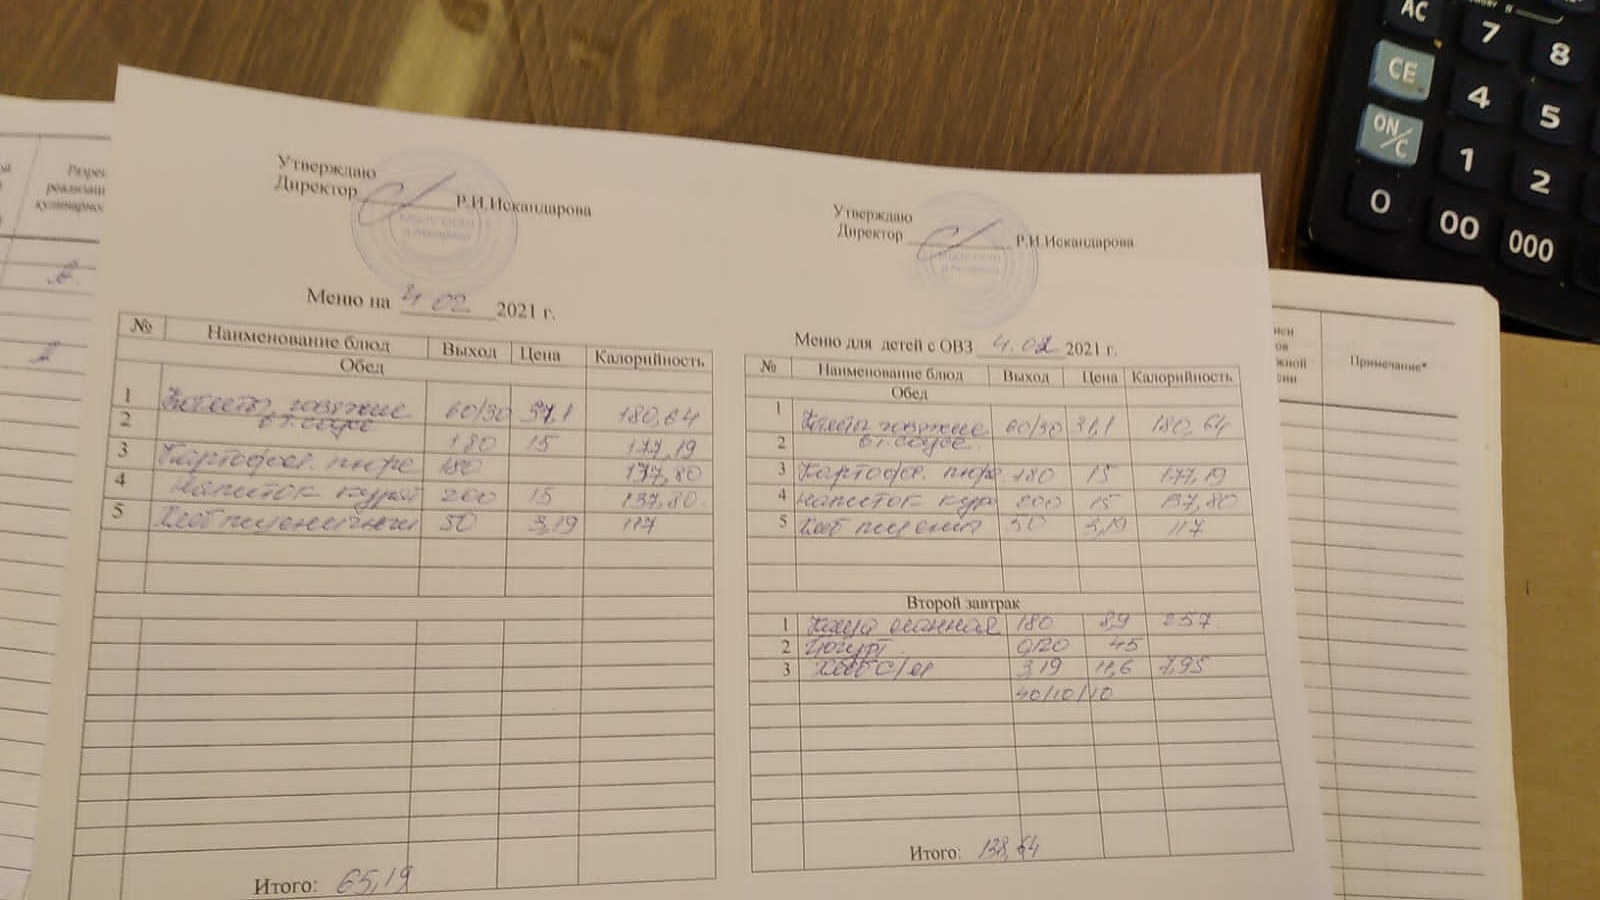 Утверждаю
Директор Р.И.Искандарова
Меню на 4 02 2021 г.
№ Наименование блюд Выход Цена Калорийность
Обед
1 Котлеты говяжие 60/30 31,1 180,64
2 в т. соусе
180 15 177,19
3 Картофел. пюре 180 137,80
4 напиток 200 15 137,80
5 Хлеб пшеничный 50 3,19 117
Итого: 65,19
Утверждаю
Директор Р.И.Искандарова
Меню для детей с ОВЗ 4.02 2021 г.
№ Наименование блюд Выход Цена Калорийность
Обед
1 Котлеты говяжие 60/30 31,1 180,64
2 в т. соусе
3 Картофел. пюре 180 15 177,19
4 напиток 200 15 137,80
5 Хлеб пшенич 50 3,19 117
Второй завтрак
1 Каша манная 180 257
2 Йогурт 45
3 Хлеб с/м 3,19 11,6 7,95
40/10/10
Итого:
реализ
кулинарно
Примечание*
AC 7 8
CE 4 5
ON/C 1 2
0 00 000